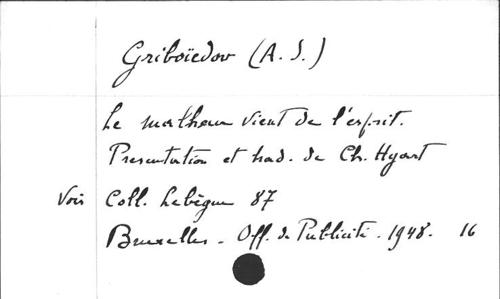 Griboïedov (A. S.)
Le malheur vient de l'esprit.
Presentation et trad. de Ch. Hyart
Voir Coll. Lebègue 87
Bruxelles - Off. de Publicité. 1948. 16